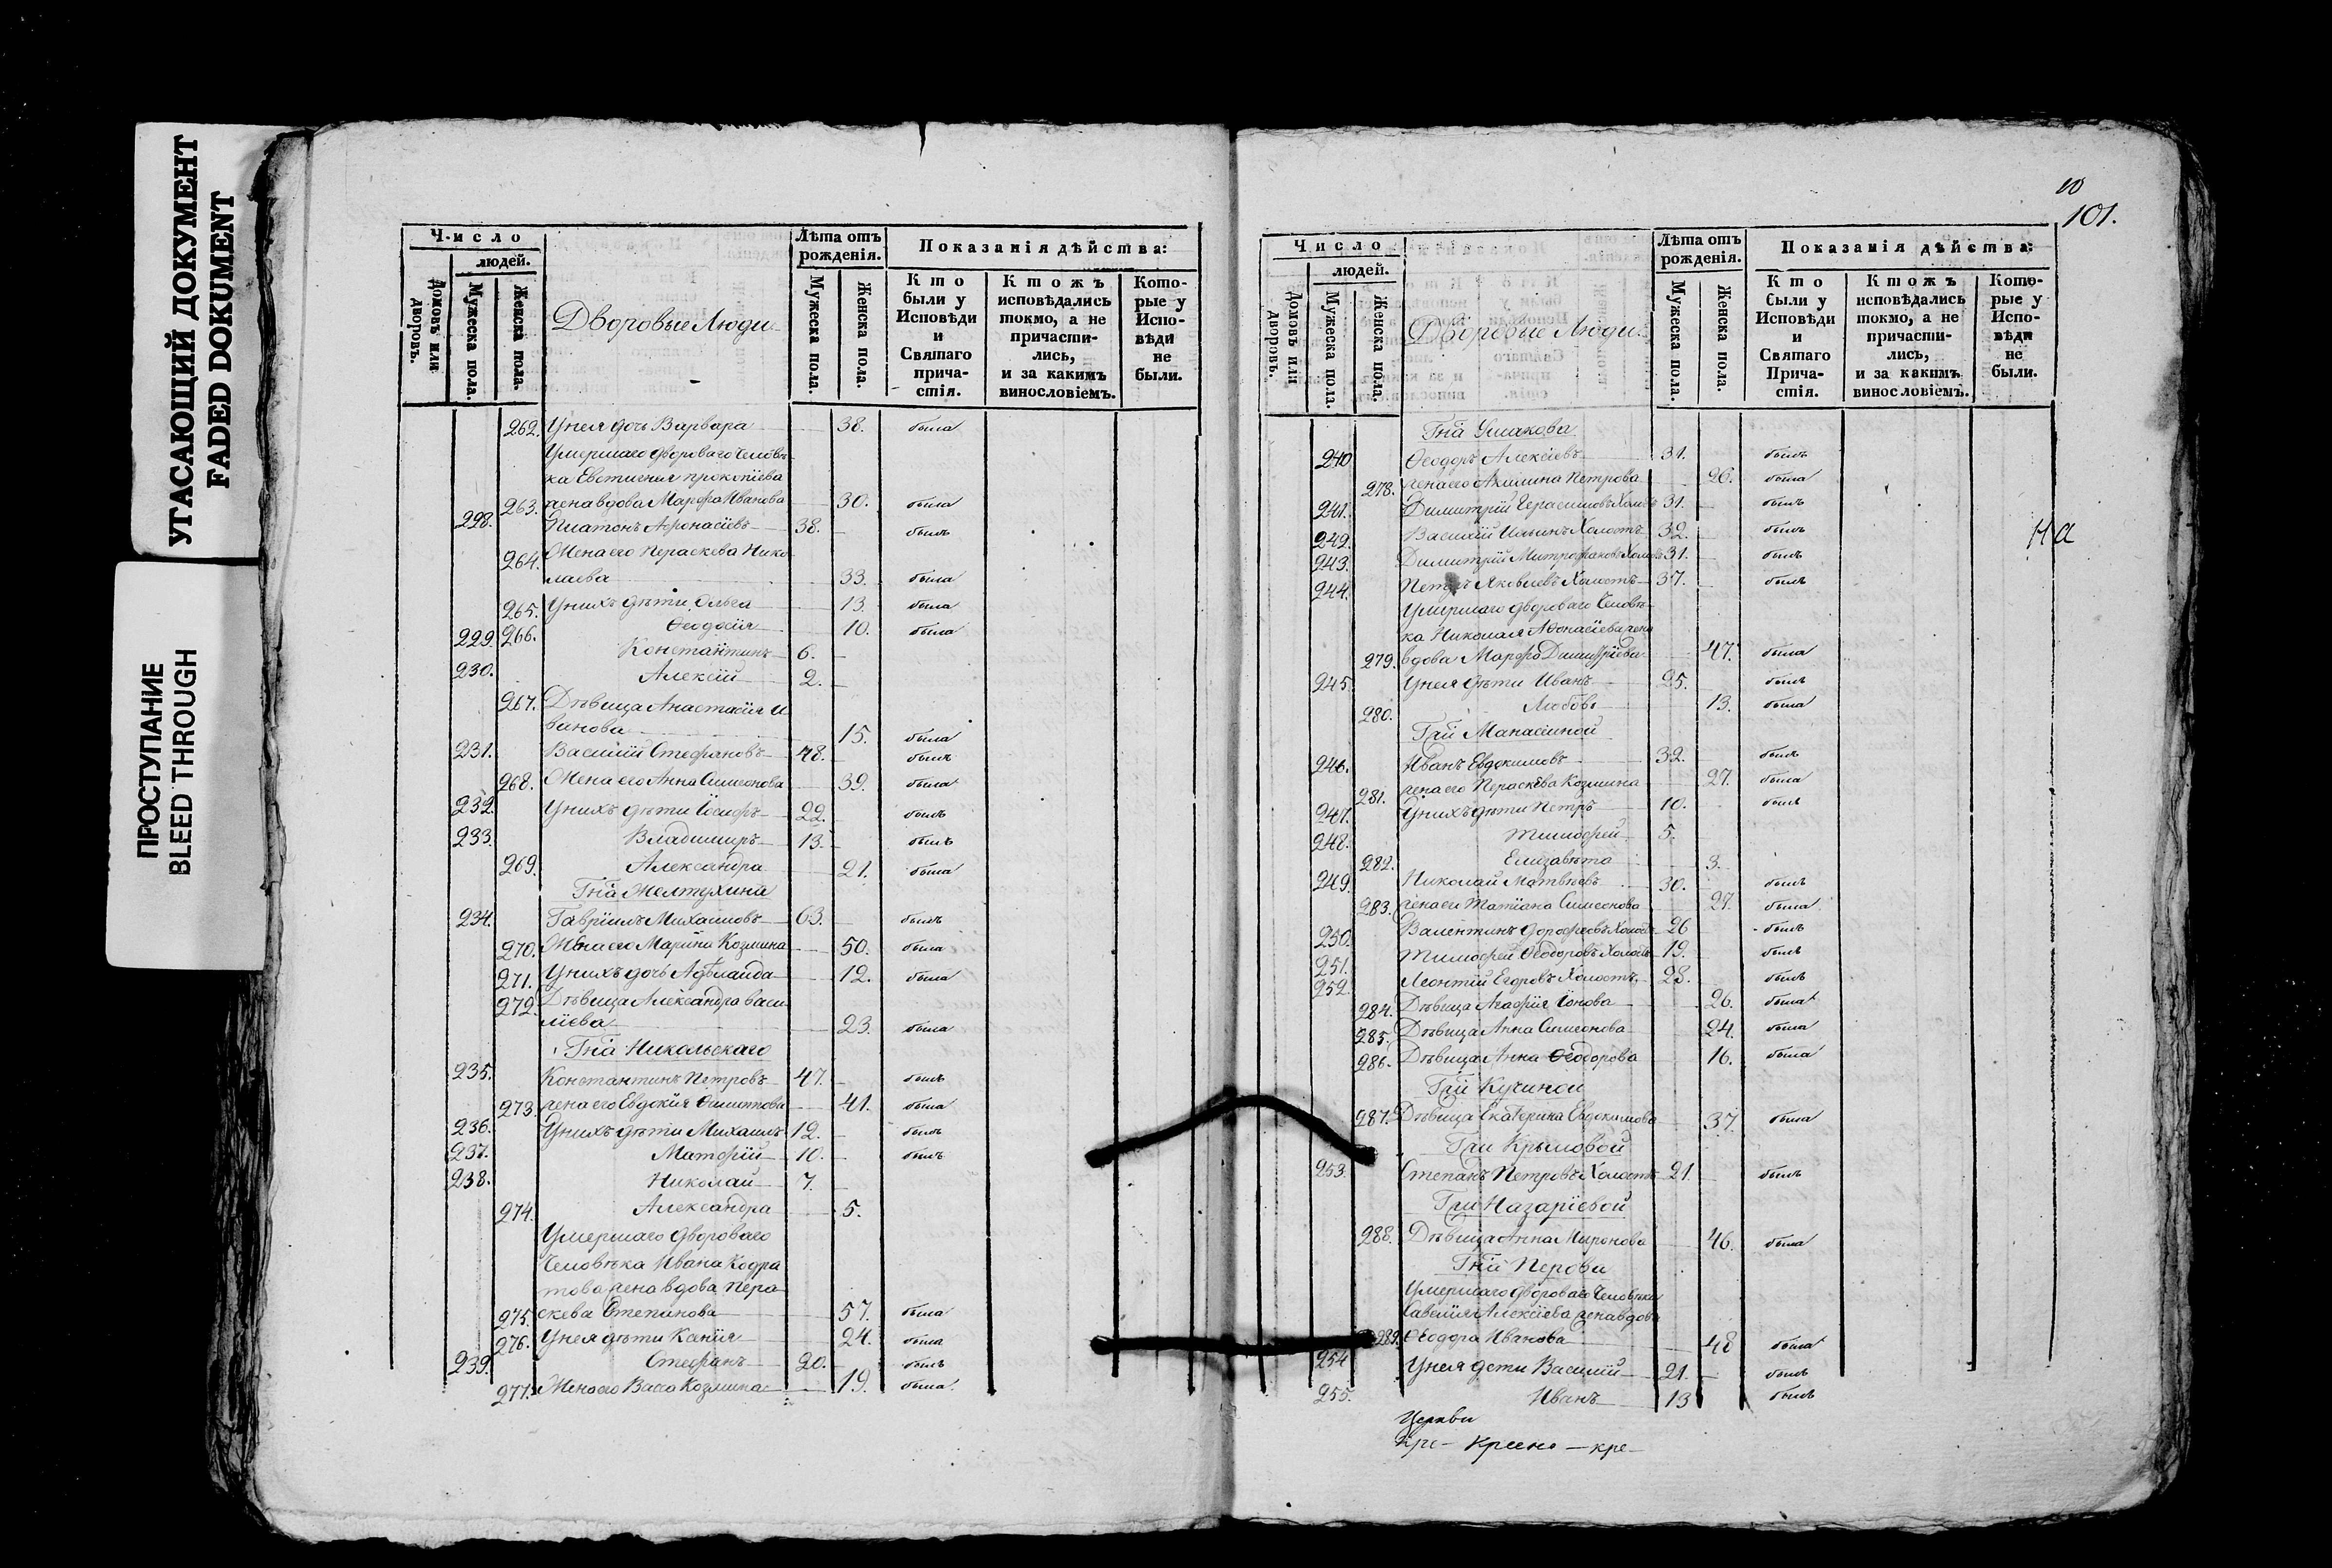 УГАСАЮЩИЙ ДОКУМЕНТ
FADED DOKUMENT
ПРОСТУПАНИЕ
BLEED THROUGH
Число
людей.
Домовъ или дворовъ.
Мужеска пола.
Женска пола.
Дворовые Люди
Лѣта отъ рожденія.
Мужеска пола.
Женска пола.
Показанія дѣйства:
Кто были у Исповѣди и Святаго прича-стія.
Ктожъ исповѣдались токмо, а не причасти-лись, и за какимъ винословіемъ.
Кото-рые у Испо-вѣди не были.
262. Унея дочь Варвара 38. была
Умершаго двороваго человѣ-
ка Евстигнея Прокопіева
263. жена вдова Марѳа Иванова 30. была
228. Платонъ Аѳонасіевъ 38. былъ
264. Жена его Параскева Нико-
лаева 33. была
265. Унихъ дѣти Ольга 13. была
266. Ѳеодосія 10. была
229. Константинъ 6.
230. Алексій 2.
267. Дѣвица Анастасія И
ванова 15. была
231. Василій Стефановъ 48. былъ
268. Жена его Анна Симеонова 39. была
232. Унихъ дѣти Іосифъ 22. былъ
233. Владимиръ 13. былъ
269. Александра 21. была
Гна Желтухина
234. Гавріилъ Михаиловъ 63. былъ
270. Жена его Марина Козмина 50. была
271. Унихъ дочь Аделаида 12. была
272. Дѣвица Александра Васи
ліева 23. была
Гна Никольскаго
235. Константинъ Петровъ 47. былъ
273. жена его Евдокія Филиппова 41. была
236. Унихъ дѣти Михаилъ 12. былъ
237. Матѳій 10. былъ
238. Николай 7.
274. Александра 5.
Умершаго двороваго
Человѣка Ивана Кодра
това жена вдова Пера
275. скева Степанова 57. была
276. Унея дѣти Ксенія 24. была
239. Стефанъ 20. былъ
277. Жена его Васса Козмина 19. была
101.
Число
людей.
Домовъ или дворовъ.
Мужеска пола.
Женска пола.
Дворовые Люди
Лѣта отъ рожденія.
Мужеска пола.
Женска пола.
Показанія дѣйства:
Кто были у Исповѣди и Святаго Прича-стія.
Ктожъ исповѣдались токмо, а не причасти-лись, и за какимъ винословіемъ.
Кото-рые у Испо-вѣди не были.
Гна Ушакова
240 Ѳеодоръ Алексіевъ 31. былъ
278. жена его Акилина Петрова 26. была
241. Димитрій Герасимовъ Холостъ 31. былъ
242. Василій Ильинъ Холостъ 32. былъ
243. Димитрій Митрофановъ Холостъ 31. былъ
244. Петръ Яковлевъ Холостъ 37. былъ
Умершаго двороваго Человѣ-
ка Николая Аѳонасіева жена
279. вдова Марѳа Димитріева 47. была
245 Унея дѣти Иванъ 25. былъ
280. Любовь 13. была
Гжи Манасиной
246. Иванъ Евдокимовъ 32. былъ
281. жена его Пераскева Козмина 27. была
247. Унихъ дѣти Петръ 10. былъ
248. Тимоѳей 5.
282. Елизавѣта 3.
249. Николай Матвѣевъ 30. былъ
283. жена его Татіана Симеонова 27. была
250. Валентинъ Дороѳеевъ Холостъ 26 былъ
251. Тимоѳей Ѳеодоровъ Холостъ 19. былъ
252. Леонтій Егоровъ Холостъ 28. былъ
284. Дѣвица Агафія Іонова 26. была
285. Дѣвица Анна Симеонова 24. была
286. Дѣвица Анна Ѳеодорова 16. была
Гжи Кучиной
287. Дѣвица Екатерина Евдокимова 37. была
Гжи Крыловой
253. Степанъ Петровъ Холостъ 21. былъ
Гжи Назаріевой
288. Дѣвица Анна Миронова 46. была
Гжи Перова
Умершаго двороваго Человѣка
Савелія Алексіева жена вдова
289. Ѳеодора Иванова 48 была
254 Унея дети Василій 21. былъ
255. Иванъ 13 былъ
Церкви
На